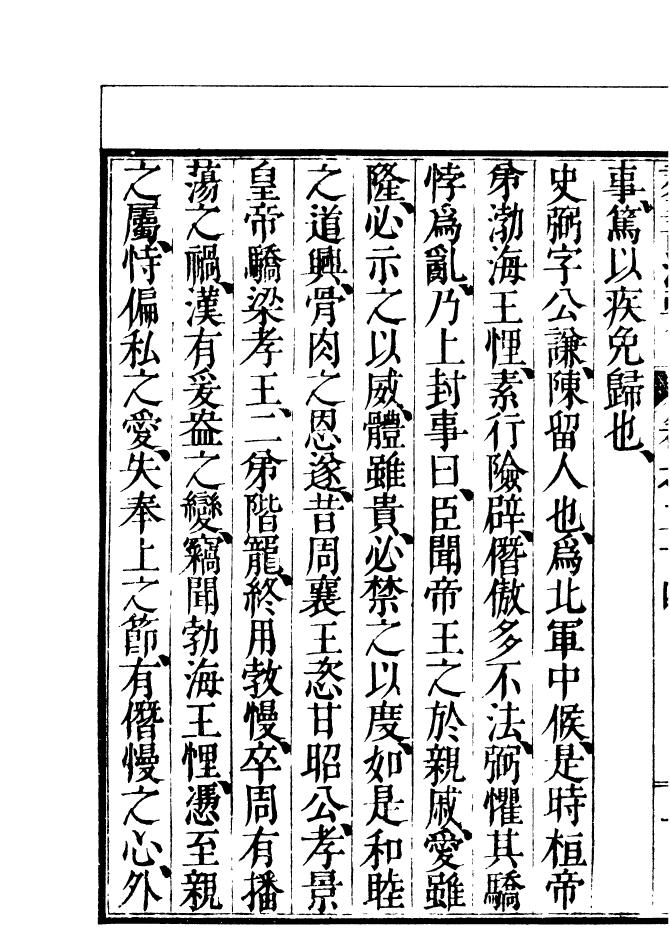 事、篤以疾免歸也、
史弼字公謙、陳留人也、爲北軍中候、是時桓帝
弟渤海王悝、素行險辟、僭傲多不法、弼懼其驕
悖爲亂、乃上封事曰、臣聞帝王之於親戚、愛雖
隆、必示之以威、體雖貴、必禁之以度、如是和睦
之道興、骨肉之恩遂、昔周襄王恣甘昭公、孝景
皇帝驕梁孝王、二弟階寵、終用㪍慢、卒周有播
蕩之禍、漢有爰盎之變、竊聞勃海王悝、憑至親
之屬、恃偏私之愛、失奉上之節、有僭慢之心、外